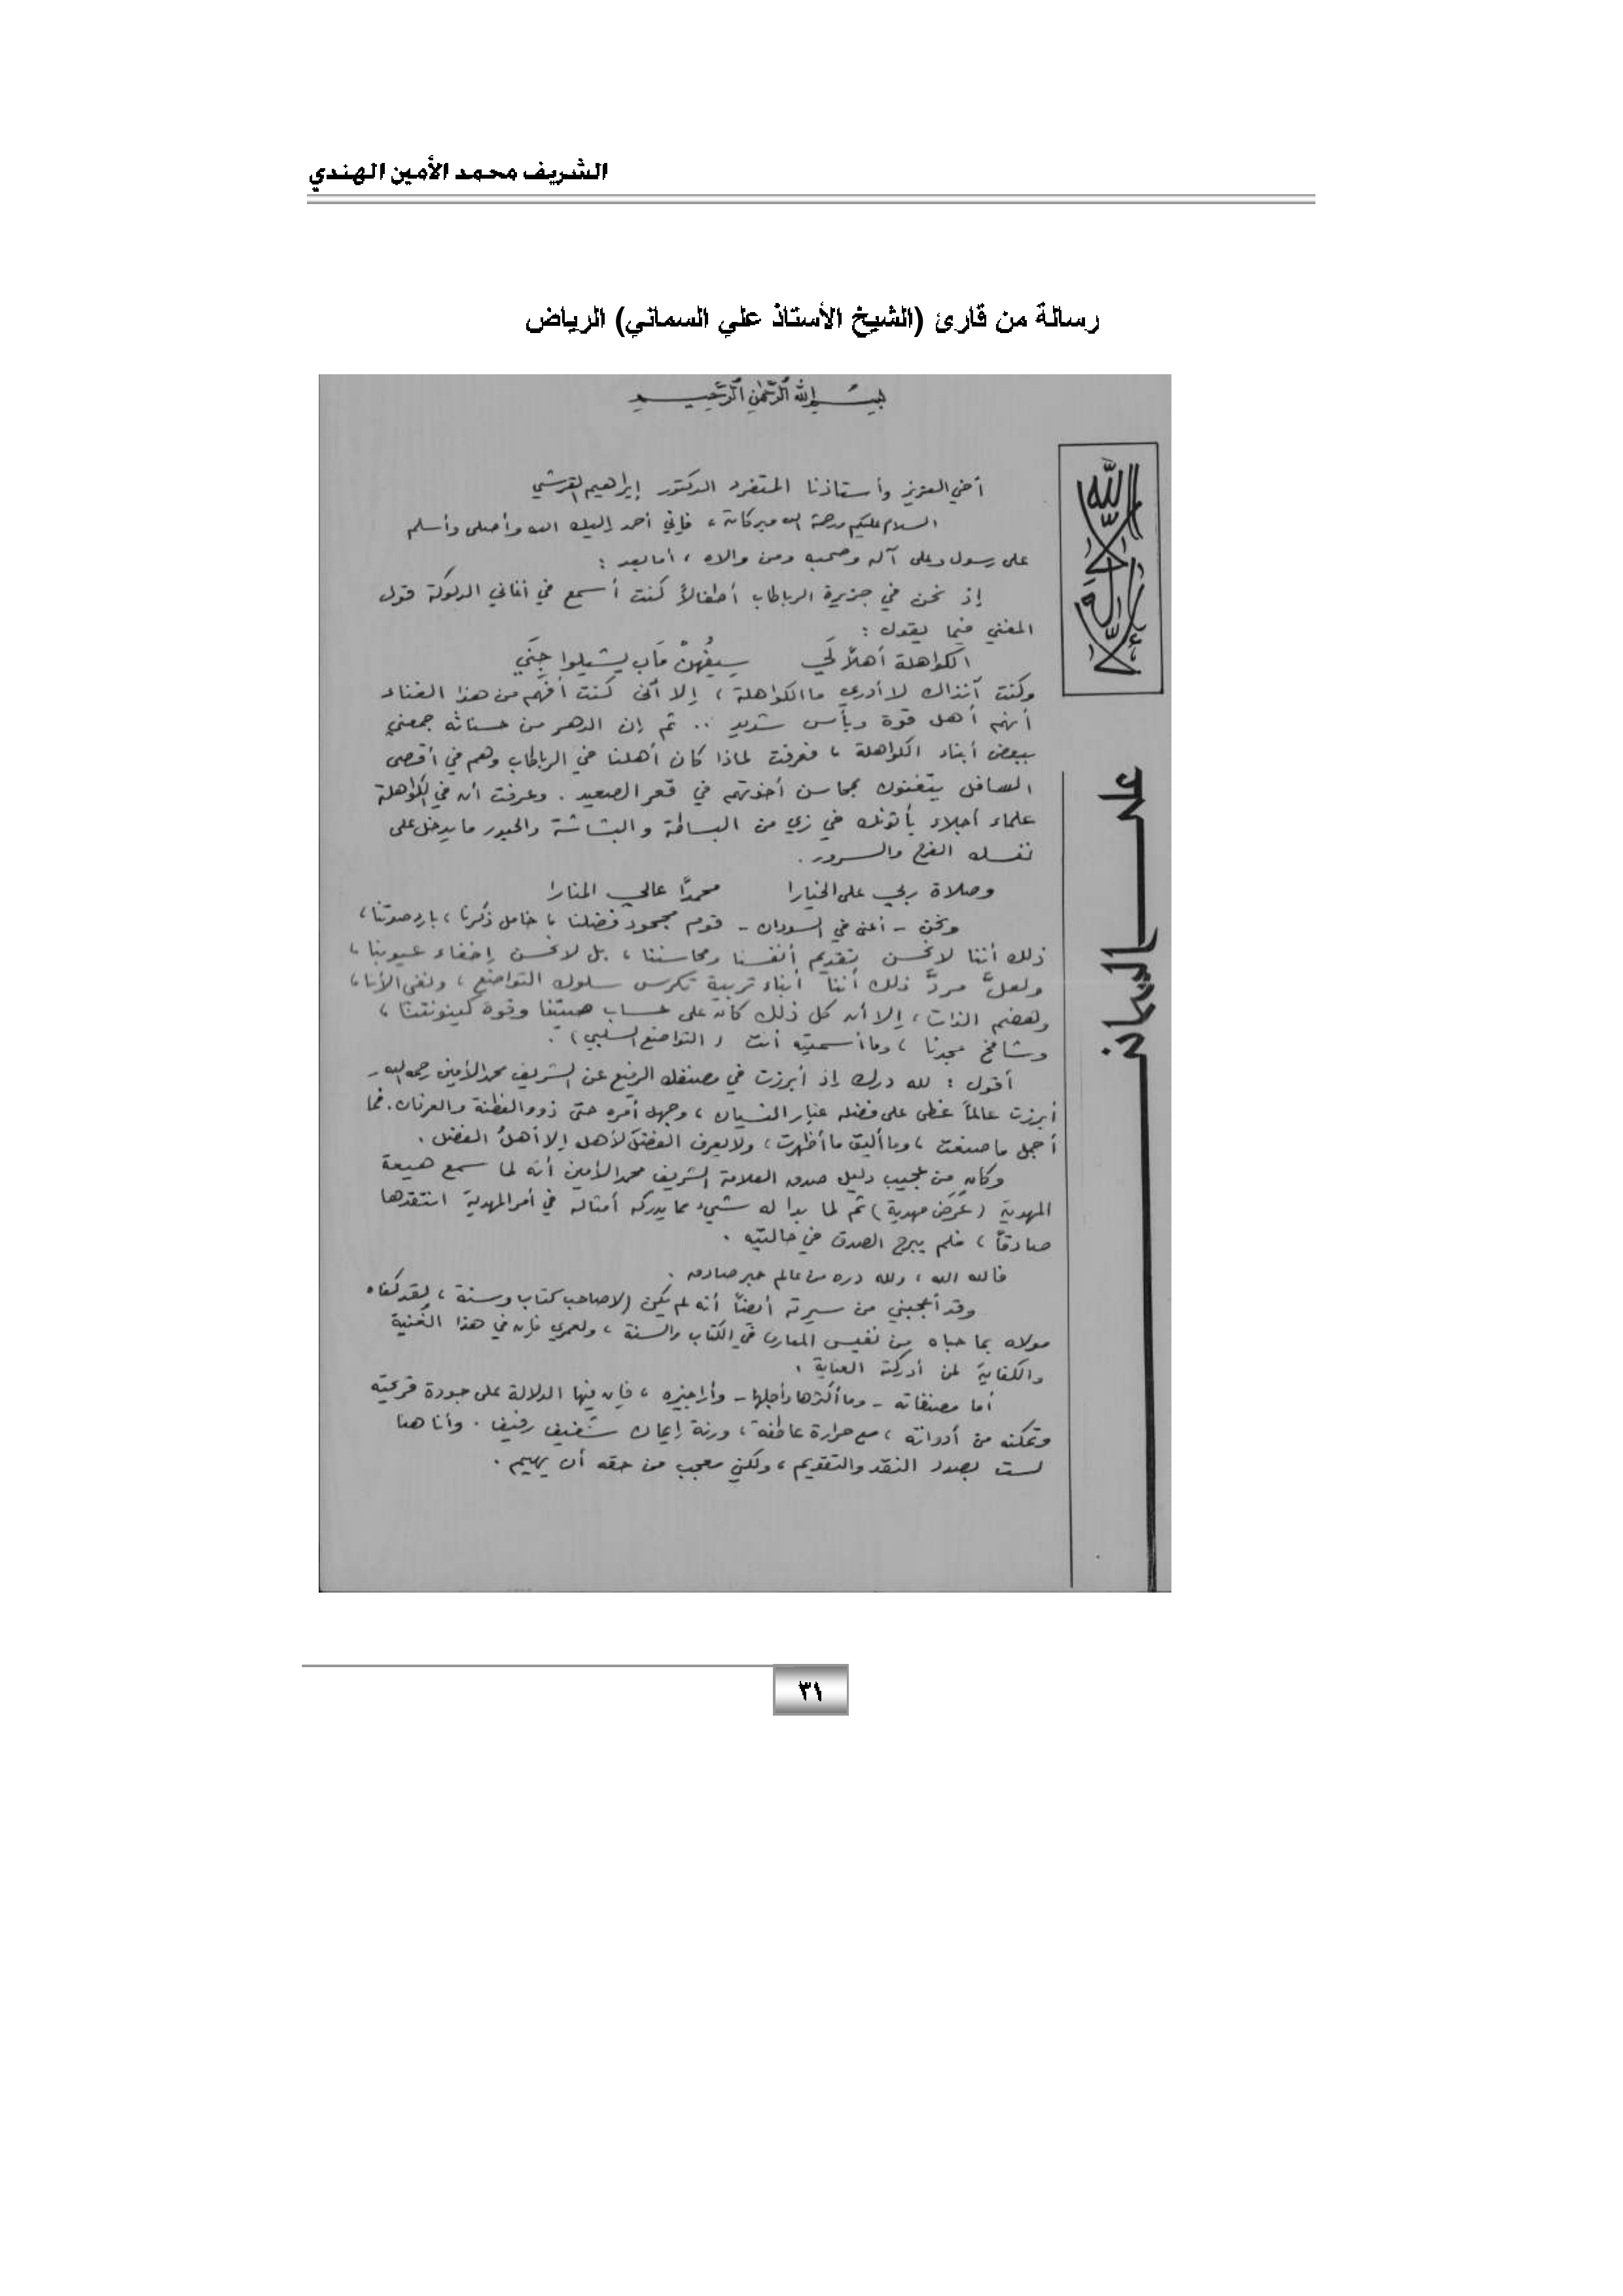 الشريف محمد الأمين الهندي
رسالة من قارئ (الشيخ الأستاذ علي السماني) الرياض
بسم الله الرحمن الرحيم
لا إله إلا الله
علي السماني
أخي العزيز وأستاذنا المتفرد الدكتور إبراهيم القرشي
السلام عليكم ورحمة الله وبركاته ، فإني أحمد إليك الله وأصلي وأسلم
على رسوله وعلى آله وصحبه ومن والاه ، أما بعد :
إذ نحن في جزيرة الرباطاب أطفالاً كنت أسمع في أغاني الدلوكة قول
المغني فيما يقول :
الكواهلة أهلاً لَي سيفهنْ مَاب يشيلوا جِنَي
وكنت آنذاك لا أدري ما الكواهلة ، إلا أني كنت أفهم من هذا الغناء
أنهم أهل قوة وبأس شديد .. ثم إن الدهر من حسناته جمعني
ببعض أبناء الكواهلة ، فعرفت لماذا كان أهلنا في الرباطاب وهم في أقصى
السافل يتغنون بمحاسن أخوتهم في قعر الصعيد . وعرفت أن في الكواهلة
علماء أجلاء يأتونك في زي من البساطة والبشاشة والحبور ما يدخل على
نفسك الفرح والسرور .
وصلاة ربي على الخيارا محمدًا عالي المنارا
ونحن - أعني في السودان - قوم مجحود فضلنا ، خامل ذكرنا ، بارد صوتنا ،
ذلك أننا لا نحسن تقديم أنفسنا ومحاسننا ، بل لا نحسن إخفاء عيوبنا ،
ولعلَّ مردَّ ذلك أننا أبناء تربية تكرس سلوك التواضع ، ونفي الأنا ،
وهضم الذات ، إلا أن كل ذلك كان على حساب هيبتنا وقوة كينونتنا ،
وشامخ مجدنا ، وما أسميته أنت (التواضع السلبي) .
أقول : لله درك إذ أبرزت في مصنفك الرفيع عن الشريف محمد الأمين رحمه الله -
أبرزت عالماً غطى على فضله غبار النسيان ، وجهل أمره حتى ذوو الفطنة والعرفان . فما
أجمل ما صنعت ، وما أليق ما أظهرت ، ولا يعرف الفضلَ لأهله إلا أهلُ الفضل .
وكان من عجيب دليل صدق العلامة الشريف محمد الأمين أنه لما سمع هيعة
المهدية (عَرَض مهدية) ثم لما بدا له شيء مما يدركه أمثاله في أمر المهدية انتقدها
صادقاً ، فلم يبرح الصدق في حالتيه .
فالله الله ، ولله دره من عالم حبر صادق .
وقد أعجبني من سيرته أيضاً أنه لم يكن إلا صاحب كتاب وسنة ، لقد كفاه
مولاه بما حباه من نفيس المعارف في الكتاب والسنة ، ولعمري فإن في هذا الغُنية
والكفاية لمن أدركته العناية .
أما مصنفاته - وما أكثرها وأجلها - وأراجيزه ، فإن فيها الدلالة على جودة قريحته
وتمكنه من أدواته ، مع حرارة عاطفة ، ورنة إيمان شفيف رفيف . وأنا هنا
لست بصدد النقد والتقويم ، ولكني معجب من حقه أن يهيم .
٣١